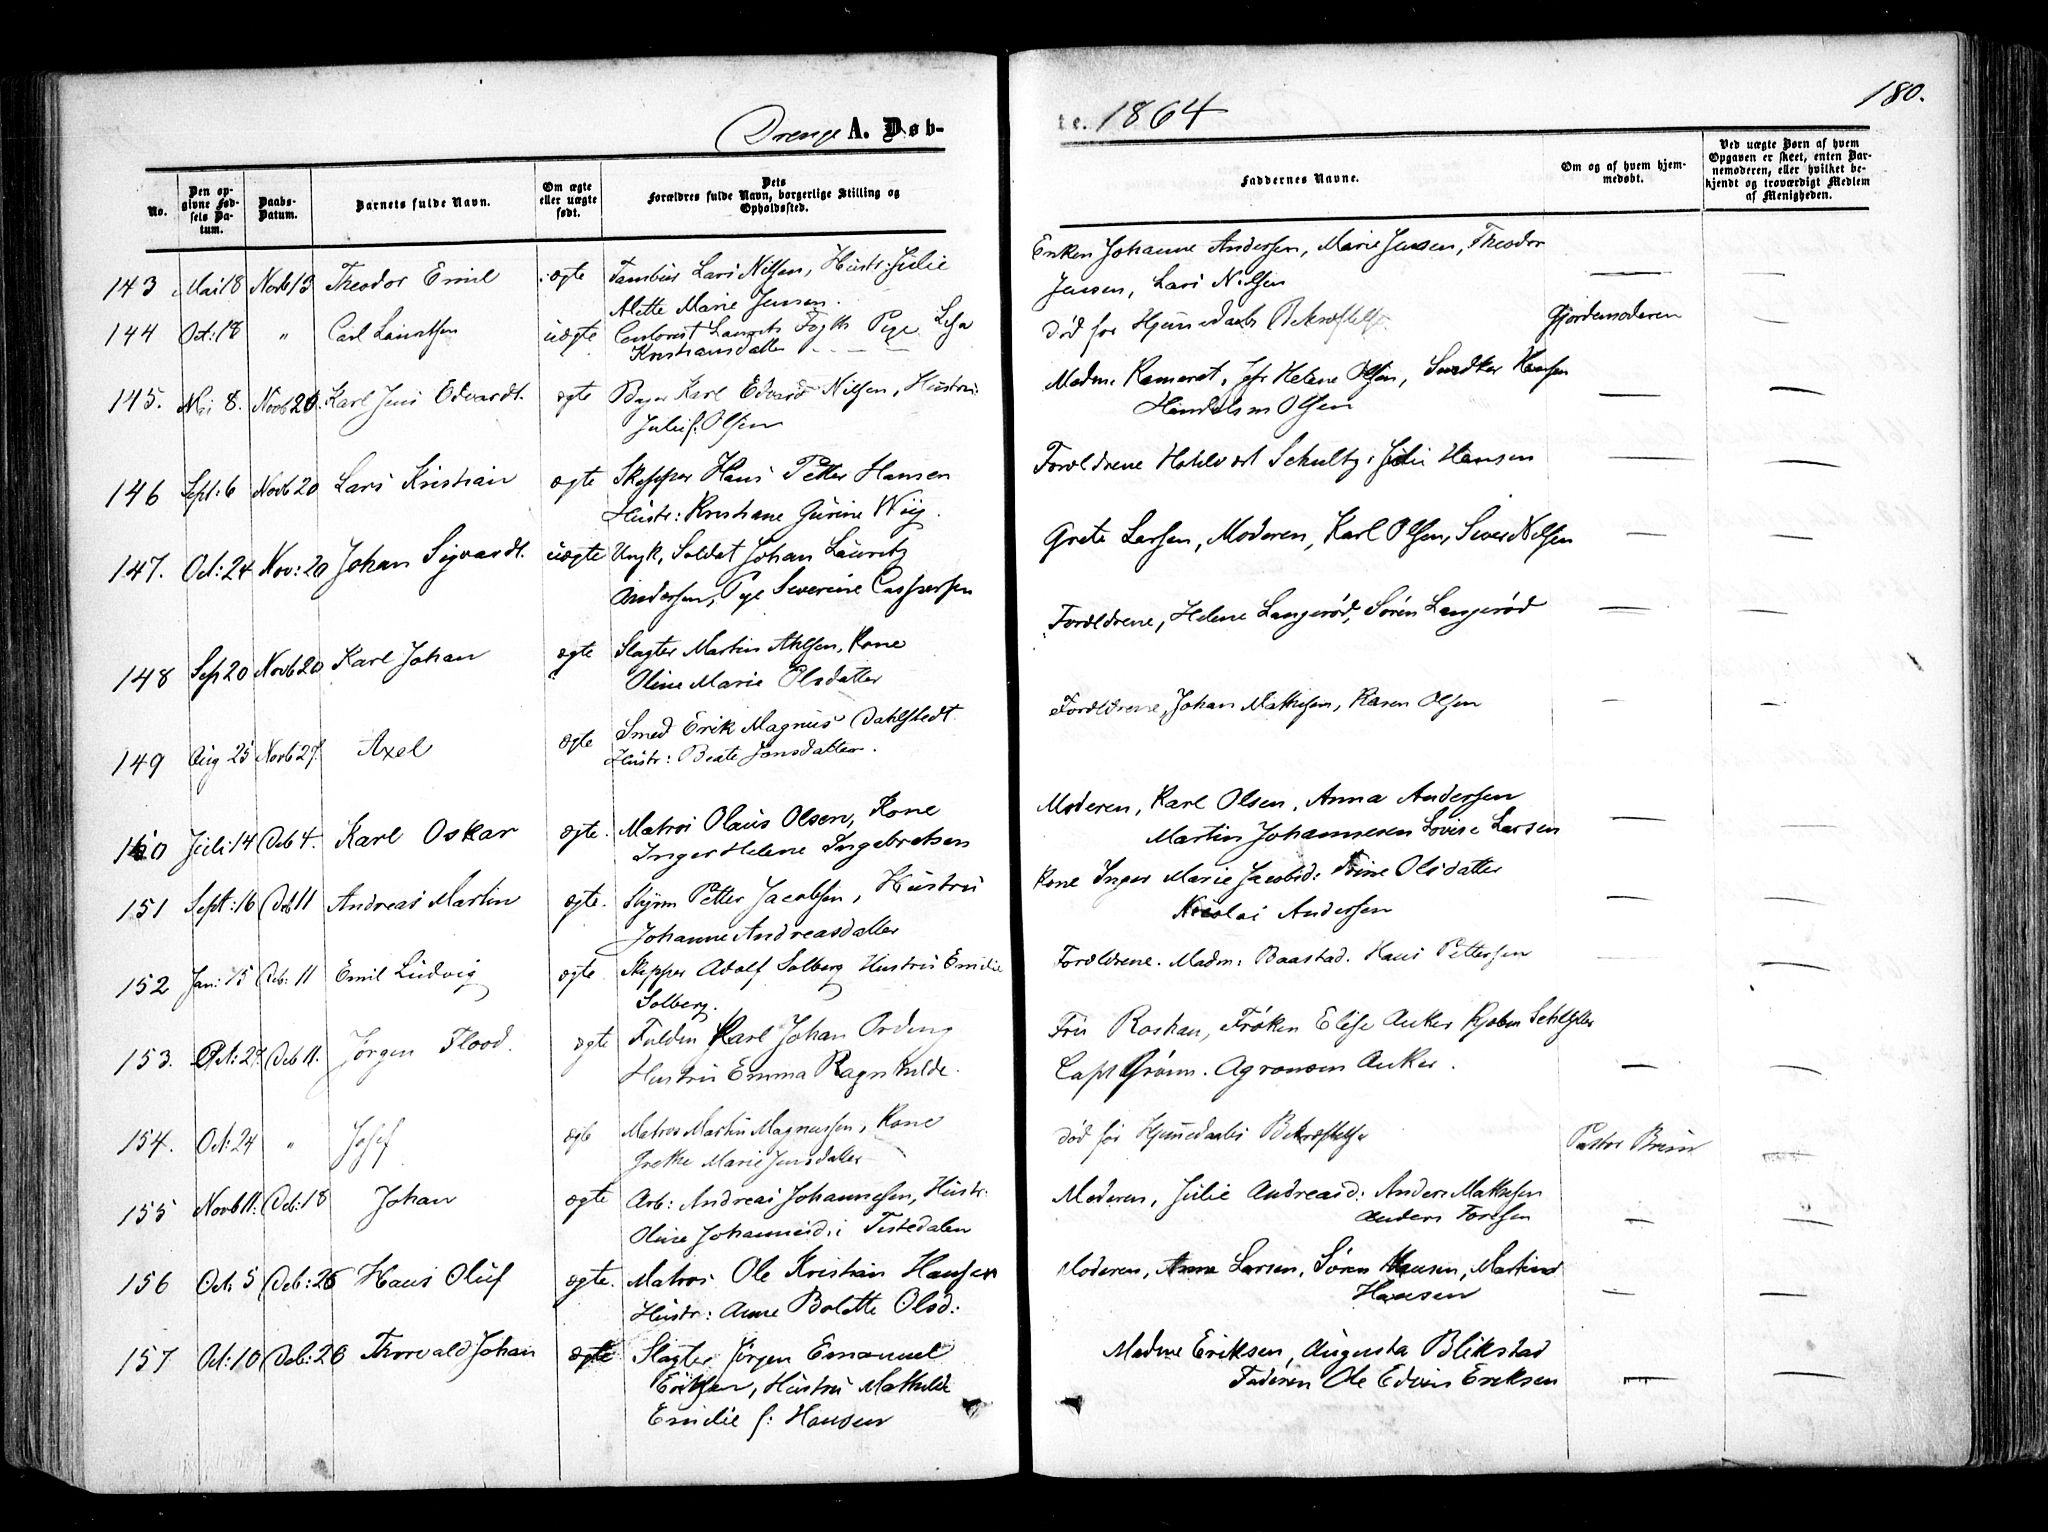 Drenge A. Døb-
te. 1864
180.
No.
Den op-
givne Fød-
sels Da-
tum.
Daabs-
Datum.
Barnets fulde Navn.
Om ægte
eller uægte
født.
Dets
Forældres fulde Navn, borgerlige Stilling og
Opholdssted.
Faddernes Navne.
Om og af hvem hjem-
medøbt.
Ved uægte Børn af hvem
Opgaven er skeet, enten Bar-
nemoderen, eller hvilket be-
kjendt og troværdigt Medlem
af Menigheden.
143 Mai 18 Novb 13 Theodor Emil ægte Tambur Lars Nilsen, Hustr: Julie Enken Johanne Andersen, Marie Jensen, Theodor — —
Mette Marie Jensen. Jensen, Lars Nilsen
144 Oct: 18 " Carl Lauritsen uægte Contorist Laurits Fogth Pige Lisa død før Hjemedaabs Bekræftelse Gjordemoderen —
Kristiansdatter
145. Mai 8. Novb 20. Karl Jens Edvardt. ægte Karl Edvard Nilsen, Hustru: Madm: Kameret, Jfr Helene Olsen, Hansen — —
Julie f: Olsen Olsen
146 Sept: 6 Novb 20 Lars Kristian ægte Skipper Hans Petter Hansen Forældrene Schultz, Julie Hansen — —
Hustr: Kristiane Gurine Wiig.
147. Oct: 24 Nov: 20 Johan Sigvardt. uægte Ungk. Soldat Johan Lauritz Grete Larsen, Moderen, Karl Olsen, Sivert Nilsen — —
Andersen, Pige Severine Caspersen
148 Sep 20 Novb 20 Karl Johan ægte Slagter Martin Ahlsen, Kone Forældrene, Helene Langerød, Søren Langerød — —
Oline Marie Olsdatter
149 Aug 25 Novb 27. Axel ægte Smed Erik Magnus Dahlstedt. Forældrene, Johan Mathisen, Karen Olsen — —
Hustr: Beate Jonsdatter.
150 Juli 14 Deb 4. Karl Oskar ægte. Matros Olaus Olsen, Kone Moderen, Karl Olsen, Anna Andersen — —
Inger Helene Ingebretsen Martin Johannesen Lovise Larsen
151 Sept: 16 Deb 11 Andreas Martin ægte. Styrm Petter Jacobsen, Hustru Kone Inger Marie Jacobsd: Trine Olsdatter — —
Johanne Andreasdatter Nicolai Andersen
152 Jan: 15 Deb: 11 Emil Ludvig ægte. Skipper Adolf Solberg Hustru Emilie Forældrene. Madm: Baastad. Hans Pettersen — —
Solberg.
153. Oct: 27. Deb 11. Jørgen Flood. ægte Karl Johan Ording Fru Roshau, Frøken Elise Anker Kjøbm
Hustru Emma Ragnhilde. Capt Grønn. Agronom Anker. — —
154. Oct: 24 " Josef ægte Matros Martin Magnussen, Kone død før Hjemedaabs Bekræftelse Pastor Bruun —
Grethe Marie Jensdatter
155 Novb 11: Deb: 18 Johan ægte Arb: Andreas Johannesen, Hustr: Moderen, Julie Andreasd: Anders Mathisen — —
Oline Johannesd: i Tistedalen Anders Toresen
156 Oct. 5 Deb: 26 Hans Oluf ægte. Matros Ole Kristian Hansen Moderen, Anna Larsen, Søren Hansen, Martine — —
Hustr: Anne Bolette Olsd: Hansen
157 Oct: 10 Deb: 26 Thorvald Johan ægte Slagter Jørgen Emanuel Madme Eriksen, Augusta Blikstad
Eriksen, Hustru Mathilde Faderen Ole Edvin Eriksen — —
Emilie f: Hansen